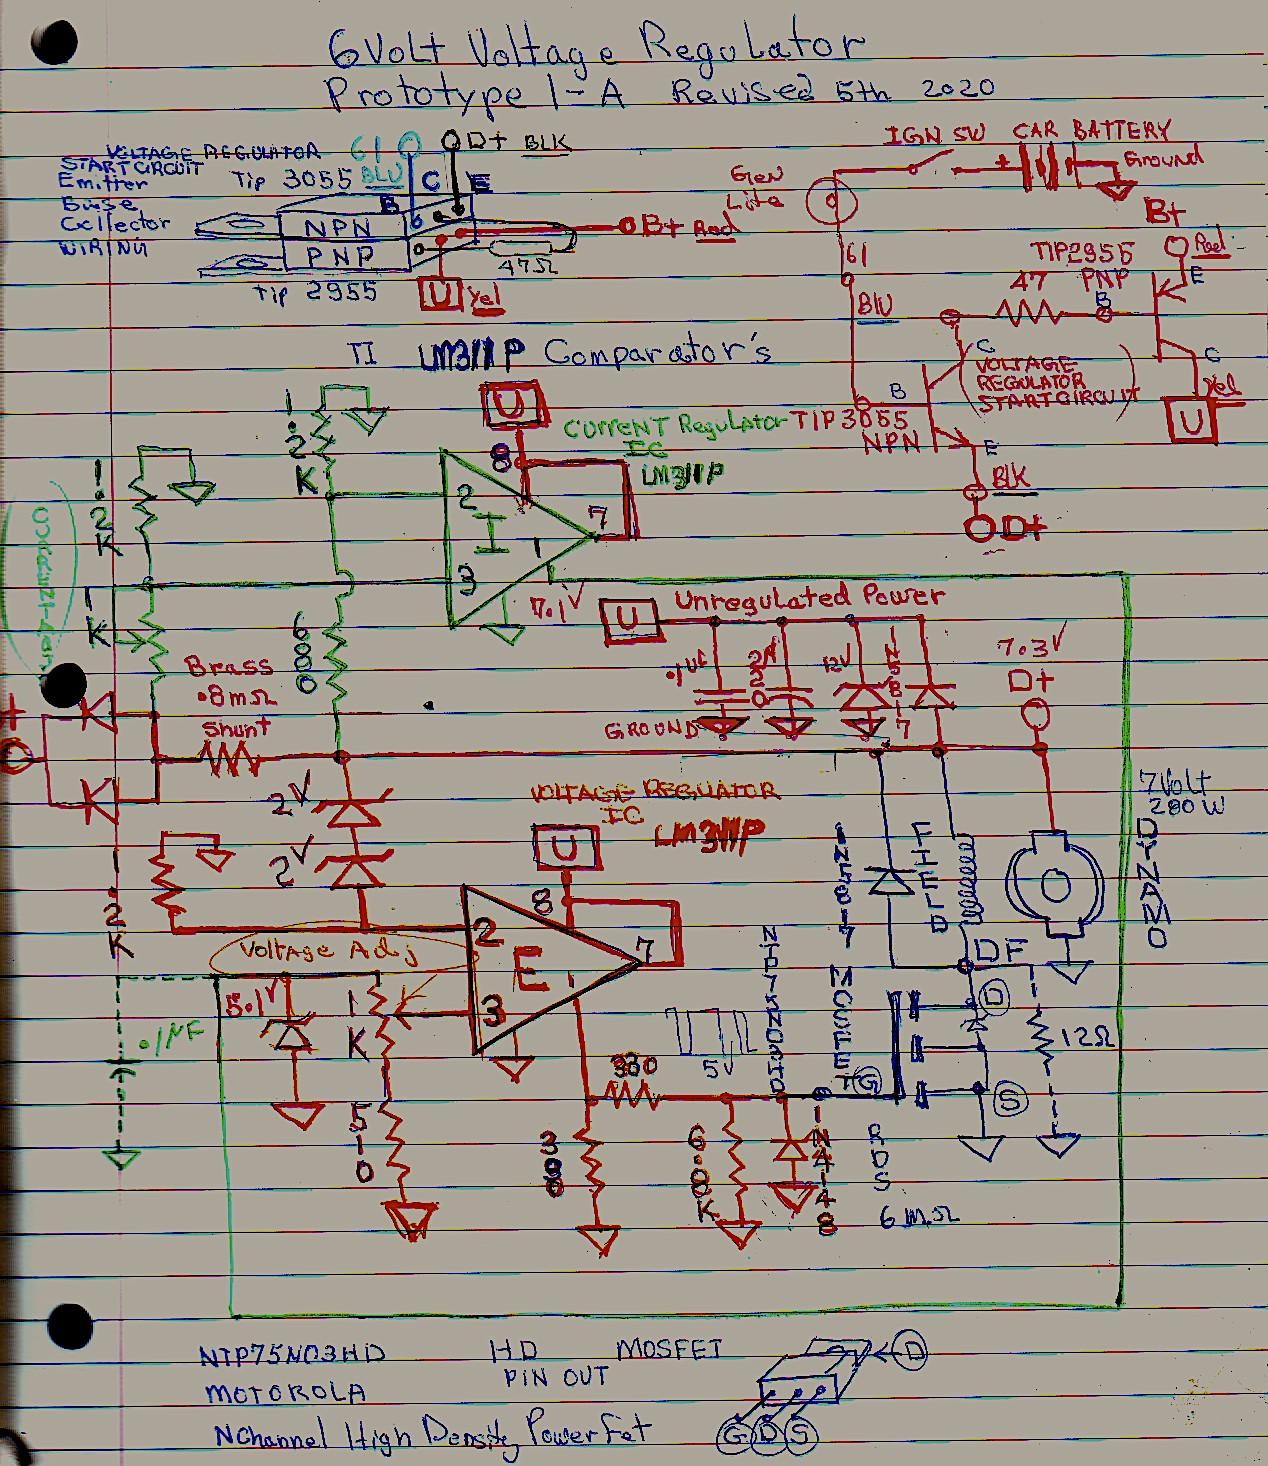 6Volt Voltage Regulator
Prototype 1-A Revised 5th 2020
VOLTAGE REGULATOR
START CIRCUIT
Emitter
Base
Collector
WIRING
Tip 3055
61
BLU
D+ BLK
B C E
NPN
PNP
B+ Red
47Ω
Tip 2955
U Yel
IGN SW CAR BATTERY
+ Ground
Gen
Lite
61
BLU
B+
Red
TIP2955
PNP
47
B
E
C
C
VOLTAGE
REGULATOR
START CIRCUIT
Yel
U
TIP3055
NPN
B
E
BLK
D+
TI LM311P Comparator's
U
CURRENT Regulator
IC
LM311P
1.2K
1.2K
8
2
I
7
1
3
7.1V
1K
680
Brass
.8mΩ
Shunt
U Unregulated Power
.1uf
220
12V
1N5817
GROUND
7.3V
D+
2V
2V
VOLTAGE REGULATOR
IC
LM311P
U
1.2K
8
2
E
7
1
3
Voltage Adj
5.1V
1K
.1µF
510
330
5V
330
6.8K
1N4148
NTP75N03HD
MOSFET
1N5817
FIELD
7Volt
280W
DYNAMO
DF
D
G
S
12Ω
RDS
6mΩ
NTP75N03HD HD MOSFET
PIN OUT
MOTOROLA
NChannel High Density PowerFet
D
G D S